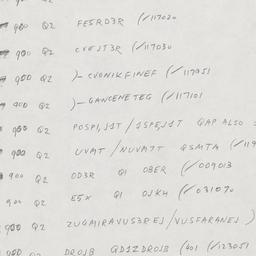 900 Q2 FE5RD3R (✓117020
900 Q2 CVEJT3R (✓117030
900 Q2 )-CVONIKFINEF (✓117051
900 Q2 )-GANCENETEG (✓117101
900 Q2 POSPIJ1T / 1SPEJ1T QAP ALSO
900 Q2 UVAT / NUVA7T QSMTA (✓119
900 Q2 OD3R QI OBER (✓009013
900 Q2 E5X QI OJKH (✓031070
900 Q2 ZUGMIRAVUS3REJ / VUSFARANEJ )
900 Q2 DROJB QD1ZDROJB (401 (✓123051